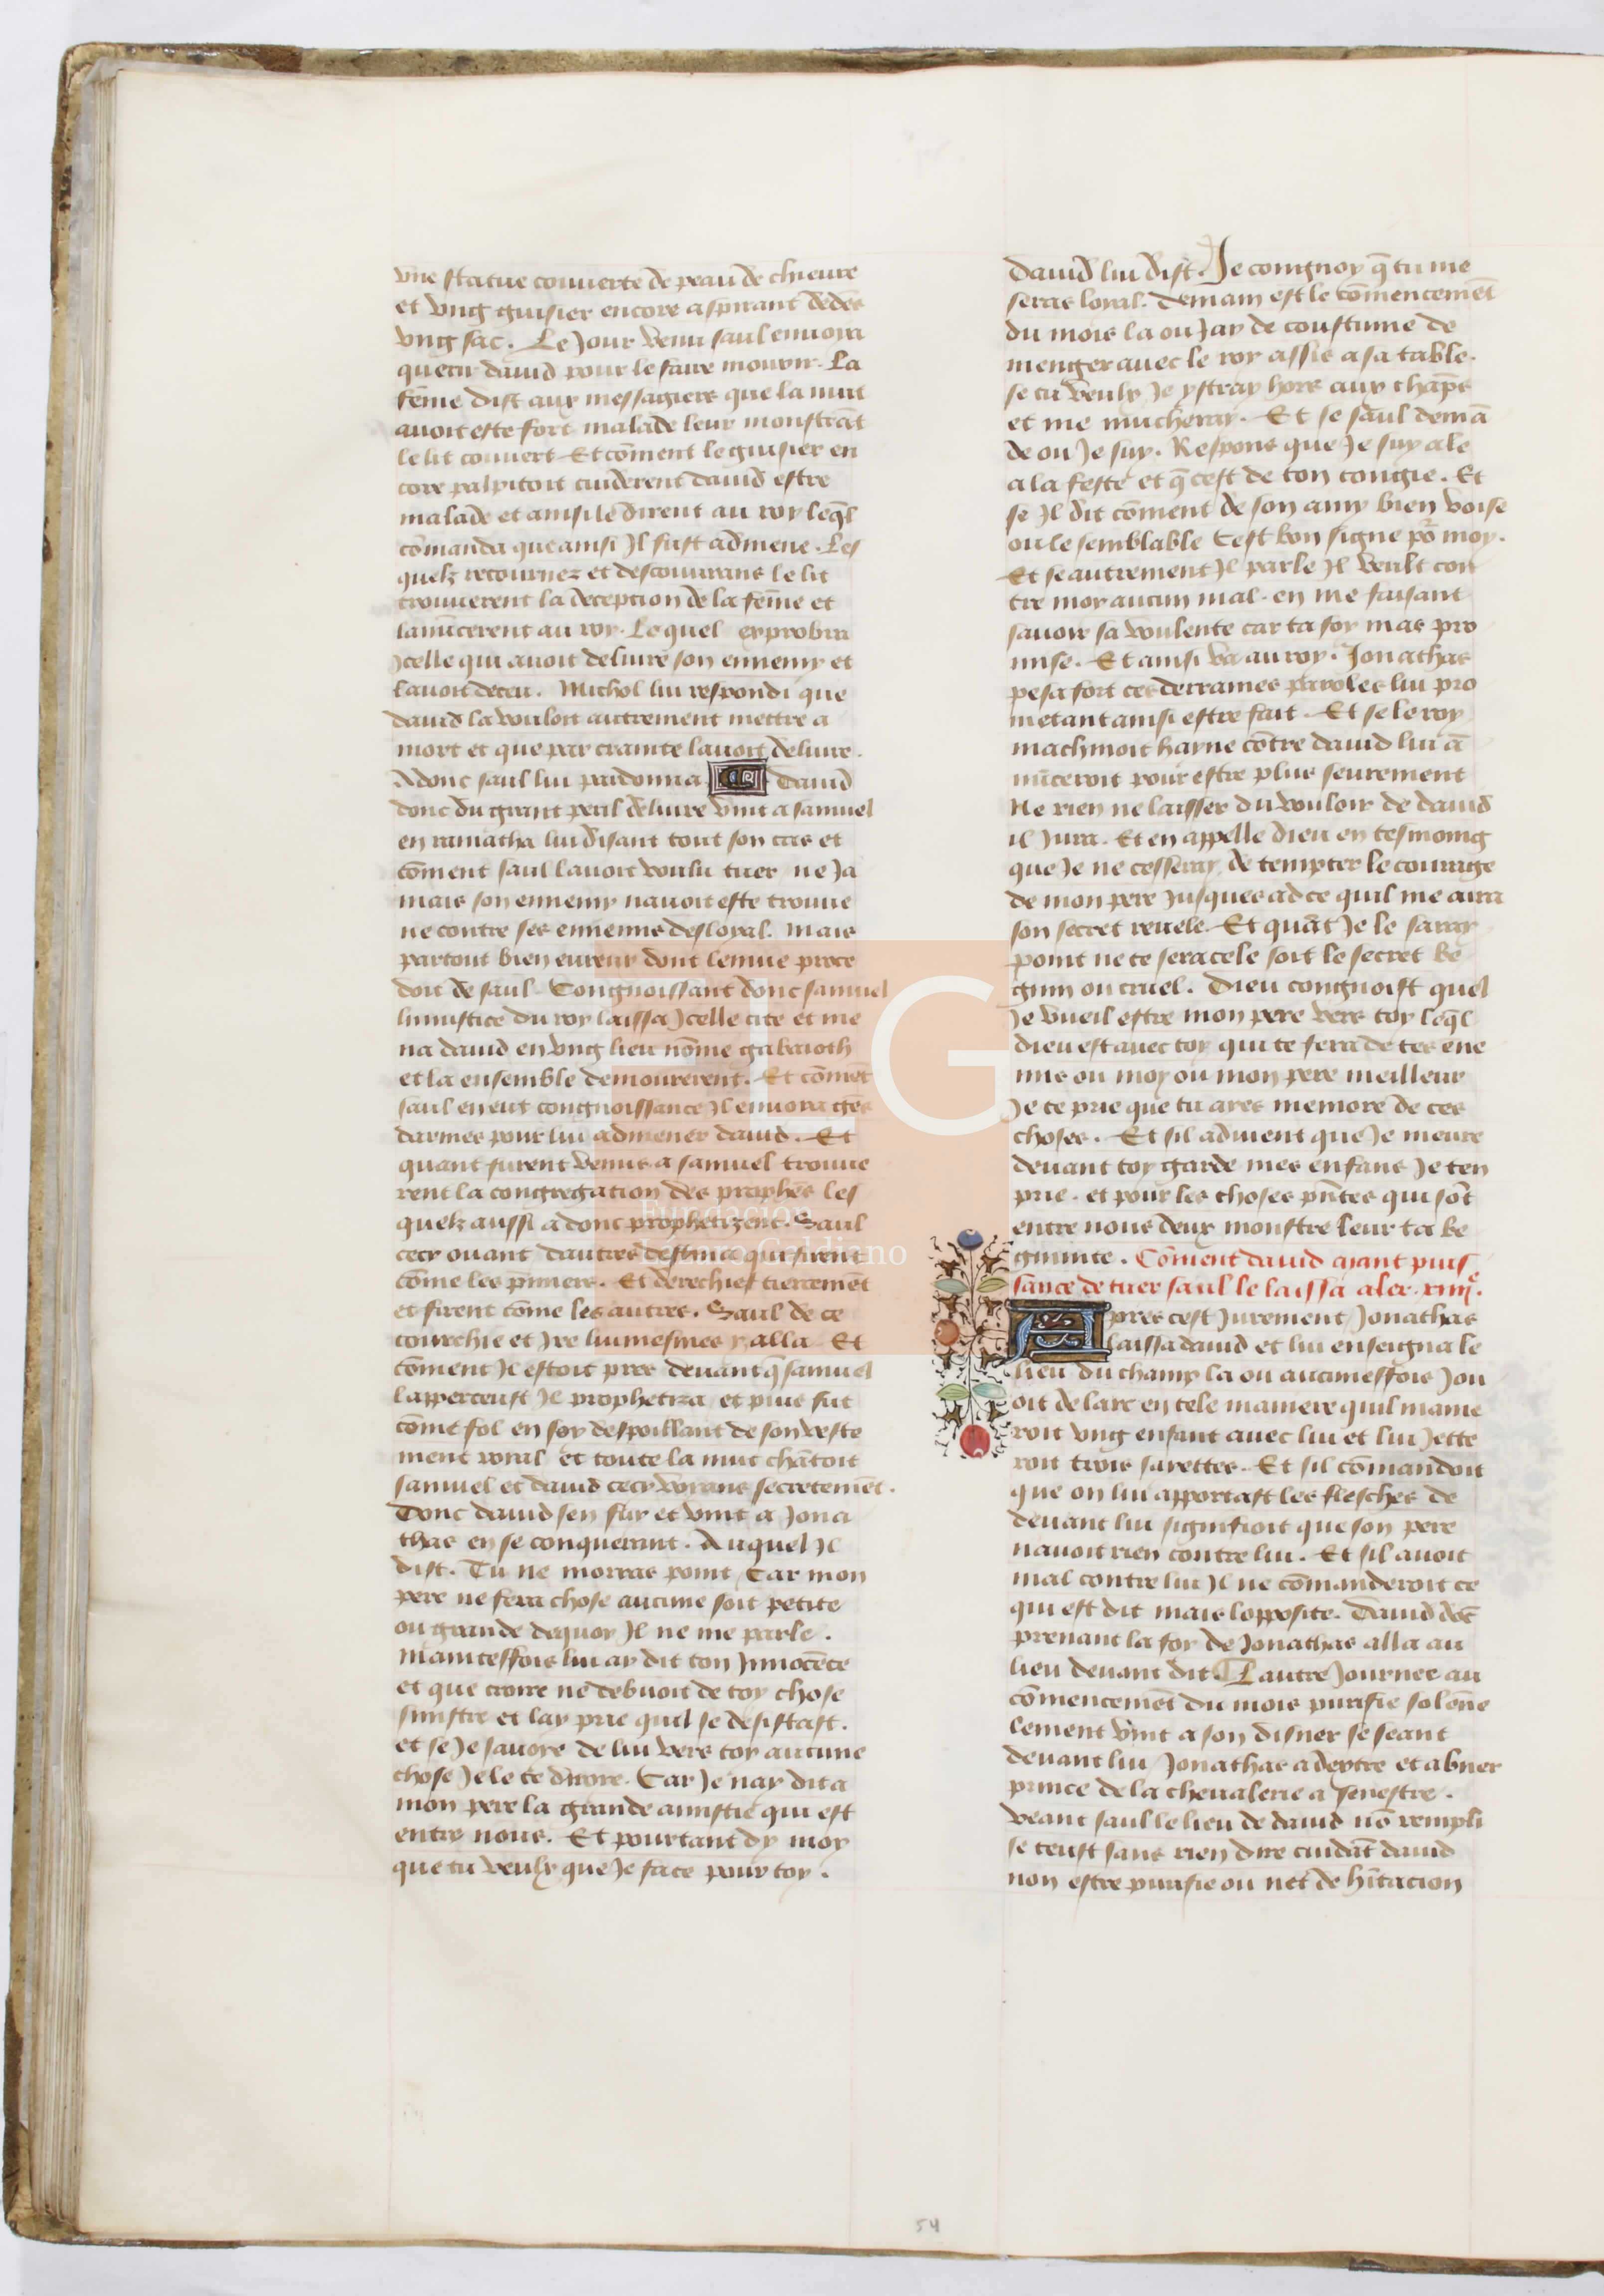 vne statue couuerte de peau de chieure
et vng guisier encore aspirant dedēs
vng sac. Le Jour venu saul enuoya
querir dauid pour le faire mourir. La
fēme dist aux messagiers que la nuit
auoit este fort malade leur monstrāt
le lit couuert Et cōment le guisier en
core palpitoit cuiderent dauid estre
malade et ainsi le dirent au roy leq̄l
cōmanda que ainsi Jl fust admene. Les
quelz retournez et descouurans le lit
trouuerent la deception de la fēme et
lanūcerent au roy. Lequel exprobra
Jcelle qui auoit deliure son ennemy et
lauoit deceu. Michol lui respondi que
dauid la vouloit autrement mettre a
mort et que par crainte lauoit deliure.
Adonc saul lui pardonna Dauid
donc du grant peril deliure vint a samuel
en ramatha lui disant tout son cas et
cōment saul lauoit voulu tuer ne Ja
mais son ennemy nauoit este trouue
ne contre ses ennemis desloyal. Mais
partout bien eureux dont lenuie proce
doit de saul. Congnoissant donc samuel
liniustice du roy laissa Jcelle cite et me
na dauid en vng lieu nōme gabaioth
et la ensemble demourerent. Et cōmēt
saul en eut congnoissance Jl enuoya gēs
darmes pour lui admener dauid. Et
quant furent venus a samuel trouue
rent la congregation des prophēs les
quelz aussi adonc prophetizent. Saul
cecy ouant dautres destina qui firent
cōme les p̄miers. Et derechief tiercemēt
et firent cōme les autres. Saul de ce
courchie et Jre luimesmes y alla Et
cōment Jl estoit pres deuant q̄ samuel
lapperceust Jl prophetiza et puis fut
cōme fol en soy despoillant de son veste
ment roial et toute la nuit chātoit
samuel et dauid cecy voyans secretemēt.
Donc dauid sen fuy et vint a Jona
thas en se conquerant. Auquel Jl
dist. Tu ne morras point Car mon
pere ne fera chose aucune soit petite
ou grande dequoy Jl ne me parle.
Maintesfois lui ay dit ton Jnnocēce
et que croire ne debuoit de toy chose
sinistre et lay prie quil se desistast.
et se Je sauoye de lui vers toy aucune
chose Je le te diroye. Car Je nay dit a
mon pere la grande amistie qui est
entre nous. Et pourtant dy moy
que tu veulx que Je face pour toy.
dauid lui dist. Je congnoy q̄ tu me
seras loyal. Demain est le cōmencemēt
du mois la ou Jay de coustume de
menger auec le roy assis a sa table.
se tu veulx Je ystray hors aux chāps
et me mucheray. Et se saul demā
de ou Je suy. Respons que Je suy ale
a la feste et q̄ cest de ton congie. Et
se Jl dit cōment de son amy bien voise
ou le semblable Cest bon signe po͛ moy.
Et se autrement Jl parle Jl veult con
tre moy aucun mal. en me faisant
sauoir sa voulente car ta foy mas pro
mise. Et ainsi va au roy. Jonathas
pesa fort ces derraines paroles lui pro
metant ainsi estre fait. Et se le roy
machinoit hayne cōtre dauid lui ā
nūceroit pour estre plus seurement
Ne rien ne laisser du vouloir de dauid
il Jura. Et en appelle dieu en tesmoing
que Je ne cesseray de tempter le courage
de mon pere Jusques ad ce quil me aura
son secret reuele. Et quāt Je le saray
point ne te sera cele soit le secret be
gnin ou cruel. Dieu congnoist quel
Je vueil estre mon pere vers toy leq̄l
dieu est auec toy qui te fera de tes ene
mis ou moy ou mon pere meilleur
Je te prie que tu ayes memore de ces
choses. Et sil aduient que Je meure
deuant toy garde mes enfans Je ten
prie. et pour les choses pn̄tes qui sōt
entre nous deux monstre leur ta be
gninite. Cōment dauid ayant puis
sance de tuer saul le laissa aler. xiiijͤ.
Apres cest Jurement Jonathas
laissa dauid et lui enseigna le
lieu du champ la ou aucunesfois Jou
oit de larc en tele maniere quil maine
roit vng enfant auec lui et lui Jette
roit trois saiettes. Et sil cōmandoit
que on lui apportast les flesches de
deuant lui signifioit que son pere
nauoit rien contre lui. Et sil auoit
mal contre lui Jl ne cōmanderoit ce
qui est dit mais lopposite. Dauid dōc
prenant la foy de Jonathas alla au
lieu deuant dit. Lautre Journee au
cōmencemēt du mois purifie solēne
lement vint a son disner se seant
deuant lui Jonathas a dextre et abner
prince de la cheualerie a senestre.
Veant saul le lieu de dauid nō rempli
se teust sans rien dire cuidāt dauid
non estre purifie ou net de hītacion
LG
Fundación
Lázaro Galdiano
54